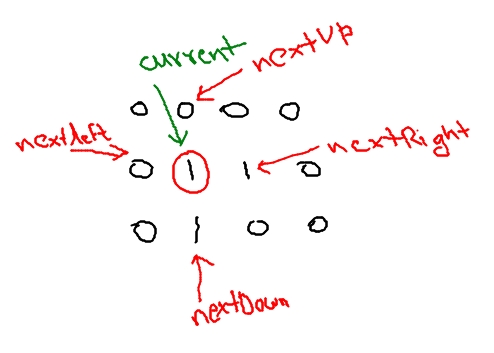 current
nextUp
0 0 0 0
nextleft
0 1 1 0
nextRight
0 1 0 0
nextDown